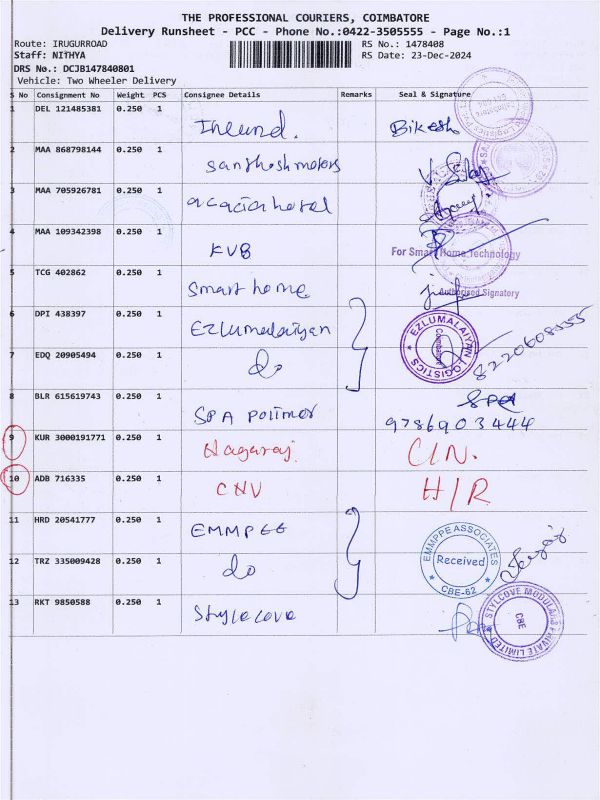 THE PROFESSIONAL COURIERS, COIMBATORE
Delivery Runsheet - PCC - Phone No.:0422-3505555 - Page No.:1
Route: IRUGURROAD RS No.: 1478408
Staff: NITHYA RS Date: 23-Dec-2024
DRS No.: DCJB147840801
Vehicle: Two Wheeler Delivery
S No Consignment No Weight PCS Consignee Details Remarks Seal & Signature
1 DEL 121485381 0.250 1 Bikesh
2 MAA 868798144 0.250 1 Santhosh motors
3 MAA 705926781 0.250 1 acacia hotel
4 MAA 109342398 0.250 1 KVB
For Smart Home Technology
5 TCG 402862 0.250 1 Smart home
Authorised Signatory
6 DPI 438397 0.250 1 Ezlumalaiyan
EZLUMALAIYAN LOGISTICS Coimbatore
7 EDQ 20905494 0.250 1 do 8220608555
8 BLR 615619743 0.250 1 SPA Polimer SPA
9786903444
9 KUR 3000191771 0.250 1 Nagaraj C/N.
10 ADB 716335 0.250 1 CNV H/R
11 HRD 20541777 0.250 1 EMMPEE
EMMPPE ASSOCIATES Received CBE-62
12 TRZ 335009428 0.250 1 do
13 RKT 9850588 0.250 1 Stylecove
STYLCOVE MODULAR PRIVATE LIMITED CBE